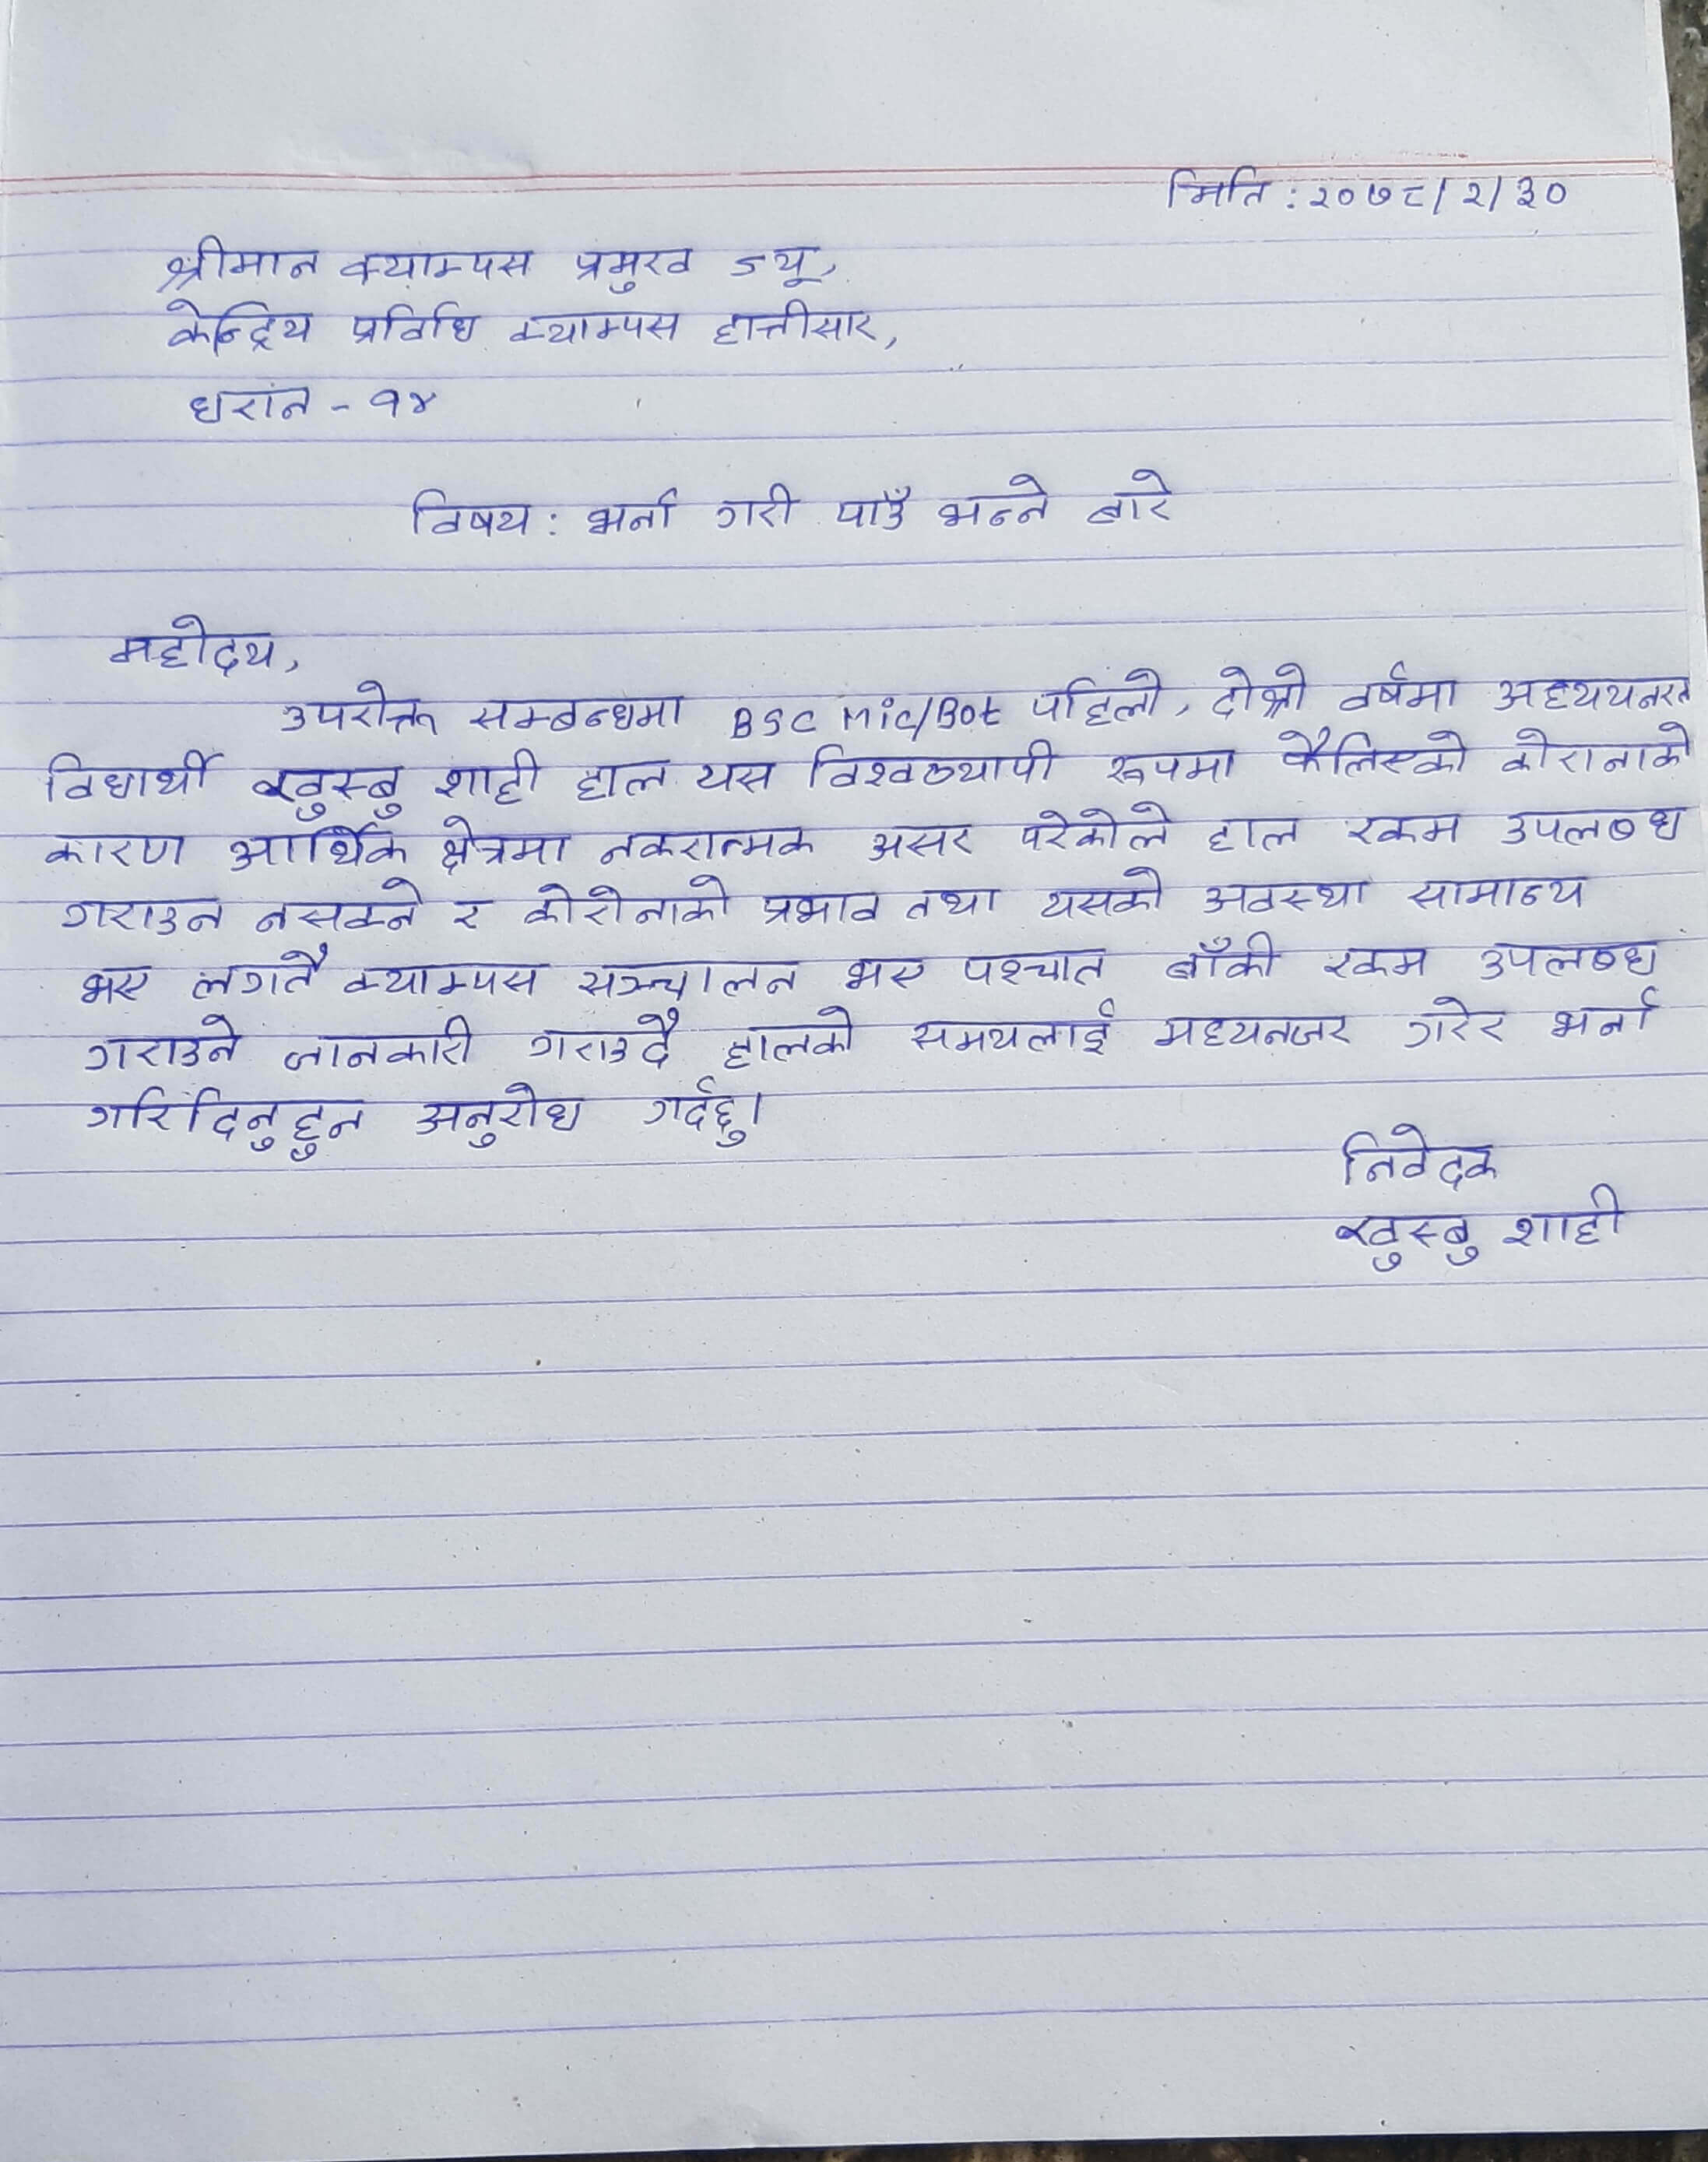 मिति : २०७८/२/३०
श्रीमान क्याम्पस प्रमुख ज्यू,
केन्द्रिय प्रविधि क्याम्पस हात्तीसार,
धरान - १४
विषय : भर्ना गरी पाउँ भन्ने बारे
महोदय,
उपरोक्त सम्बन्धमा BSC Mic/Bot पहिलो, दोश्रो वर्षमा अध्ययनरत
विधार्थी खुस्बु शाही हाल यस विश्वव्यापी रूपमा फैलिएको कोरानाको
कारण आर्थिक क्षेत्रमा नकरात्मक असर परेकोले हाल रकम उपलब्ध
गराउन नसक्ने र कोरोनाको प्रभाव तथा यसको अवस्था सामान्य
भए लगतै क्याम्पस सञ्चालन भए पश्चात बाँकी रकम उपलब्ध
गराउने जानकारी गराउदै हालको समयलाई मध्यनजर गरेर भर्ना
गरिदिनुहुन अनुरोध गर्दछु।
निवेदक
खुस्बु शाही